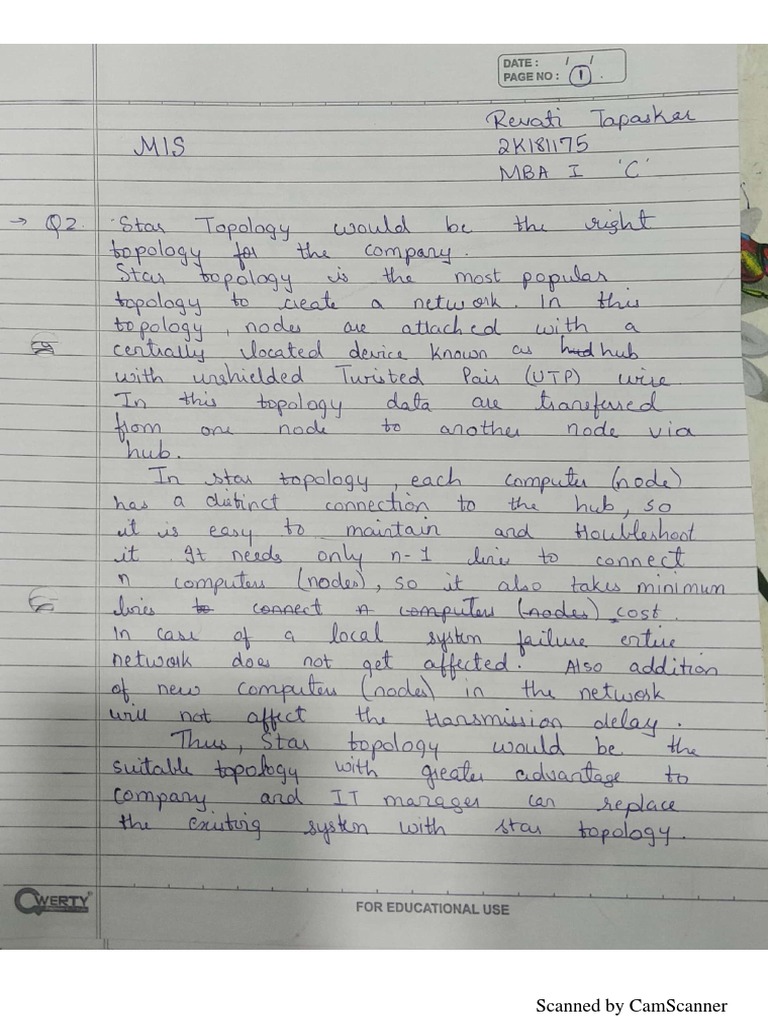 DATE : / /
PAGE NO : 1
Revati Tapaskar
MIS
2K181175
MBA I 'C'
→ Q2. Star Topology would be the right
topology for the company.
Star topology is the most popular
topology to create a network. In this
topology, nodes are attached with a
centrally located device known as hub
with unshielded Twisted Pair (UTP) wire.
In this topology data are transferred
from one node to another node via
hub.
In star topology, each computer (node)
has a distinct connection to the hub, so
it is easy to maintain and troubleshoot
it. It needs only n-1 lines to connect
n computers (nodes), so it also takes minimum
lines to connect n computers (nodes) cost.
In case of a local system failure entire
network does not get affected. Also addition
of new computers (nodes) in the network
will not affect the transmission delay.
Thus, Star topology would be the
suitable topology with greater advantage to
company and IT manager can replace
the existing system with star topology.
QWERTY
FOR EDUCATIONAL USE
Scanned by CamScanner